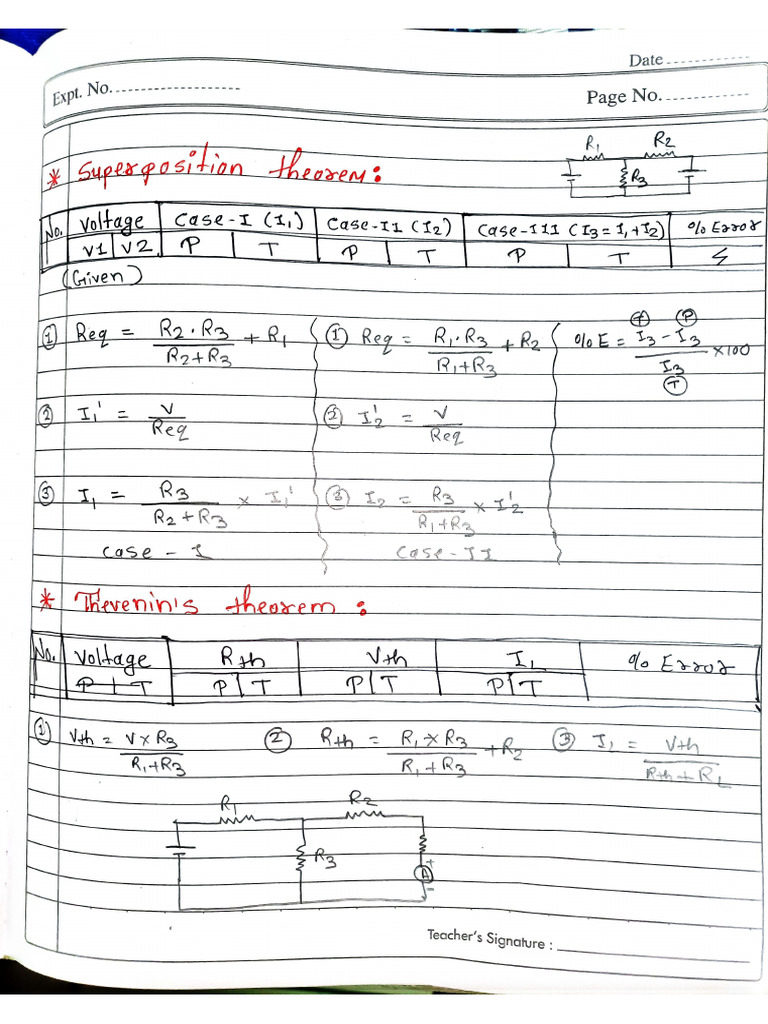 Date ............
Expt. No. ....................
Page No. ............
R1 R2
R3
* Superposition theorem:
No. Voltage Case-I (I1) Case-II (I2) Case-III (I3 = I1 + I2) % Error
V1 V2 P T P T P T
(Given)
① Req = R2·R3 / R2+R3 + R1
② I1' = V / Req
③ I1 = R3 / R2+R3 × I1'
Case - I
① Req = R1·R3 / R1+R3 + R2
② I2' = V / Req
③ I2 = R3 / R1+R3 × I2'
Case - II
Ⓣ Ⓟ
% E = I3 - I3 / I3 ×100
Ⓣ
* Thevenin's theorem :
No. Voltage Rth Vth I1 % Error
P T P T P T P T
① Vth = V×R3 / R1+R3 ② Rth = R1×R3 / R1+R3 + R2 ③ I1 = Vth / Rth + RL
R1 R2
R3
A
+
-
Teacher's Signature : ____________